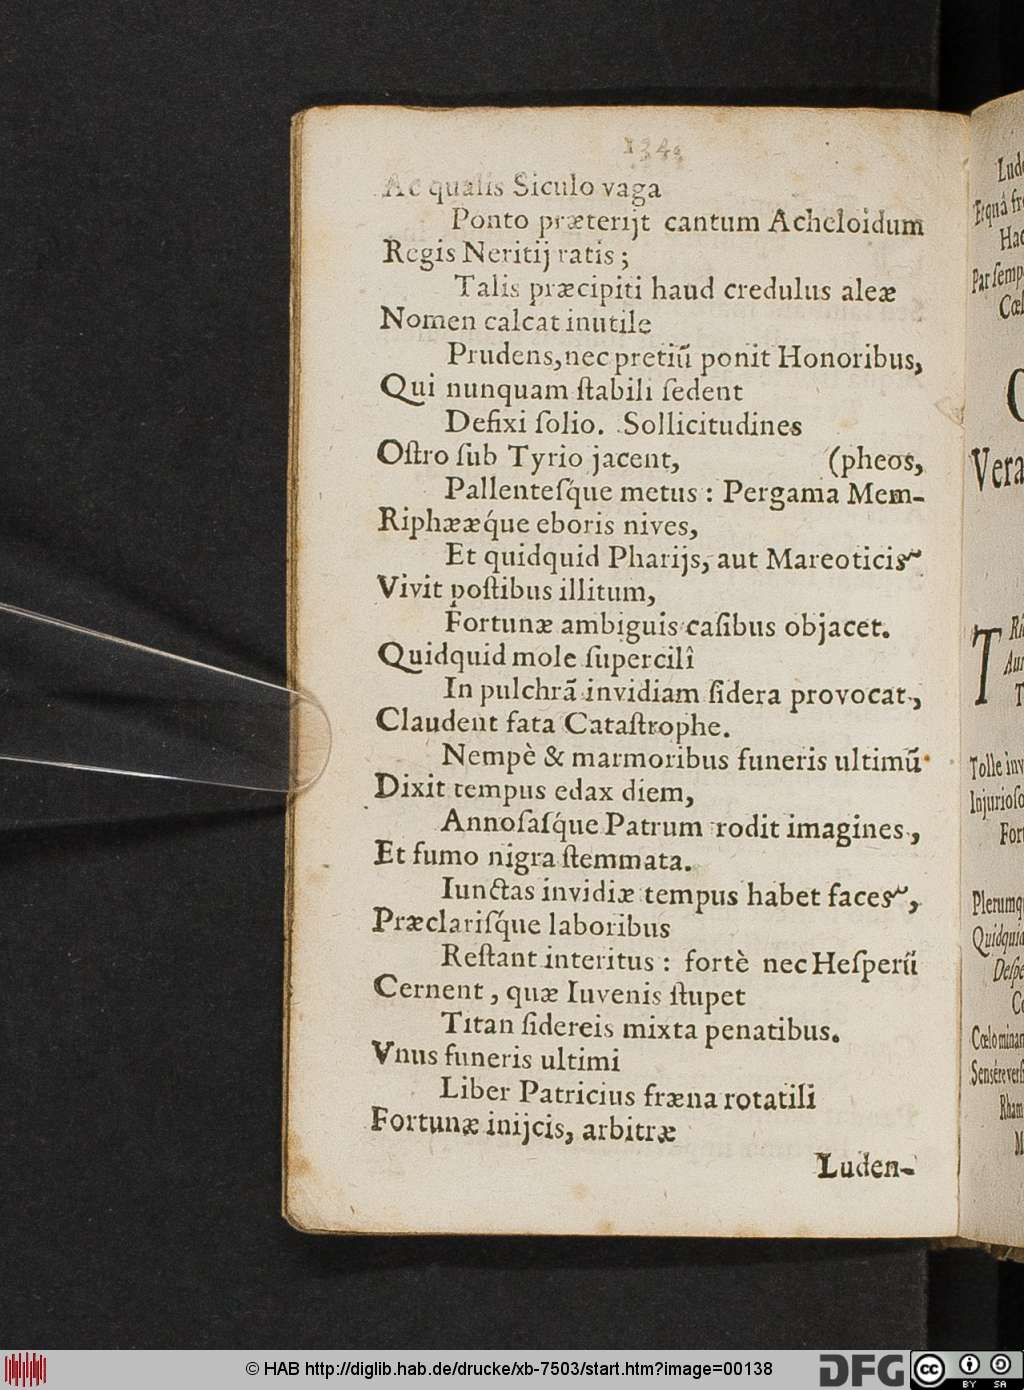 134.
Ac qualis Siculo vaga
Ponto præterijt cantum Acheloidum
Regis Neritij ratis ;
Talis præcipiti haud credulus aleæ
Nomen calcat inutile
Prudens, nec pretiū ponit Honoribus,
Qui nunquam ſtabili ſedent
Defixi ſolio. Sollicitudines
Oſtro ſub Tyrio jacent, (pheos,
Pallenteſq́ue metus : Pergama Mem-
Riphææq́ue eboris nives,
Et quidquid Pharijs, aut Mareoticis
Vivit poſtibus illitum,
Fortunæ ambiguis caſibus objacet.
Quidquid mole ſupercilî
In pulchrā invidiam ſidera provocat,
Claudent fata Cataſtrophe.
Nempè & marmoribus funeris ultimū
Dixit tempus edax diem,
Annoſaſq́ue Patrum rodit imagines,
Et fumo nigra ſtemmata.
Iunctas invidiæ tempus habet faces,
Præclariſq́ue laboribus
Reſtant interitus : fortè nec Heſperū
Cernent, quæ Iuvenis ſtupet
Titan ſidereis mixta penatibus.
Vnus funeris ultimi
Liber Patricius fræna rotatili
Fortunæ inijcis, arbitræ
Luden-
Hac
Par ſemp
Vera
T
Tolle inv
Injurioſo
Fort
Plerumq
Quidquid
Cœlo minan
Rham
© HAB http://diglib.hab.de/drucke/xb-7503/start.htm?image=00138
DFG
cc
BY SA